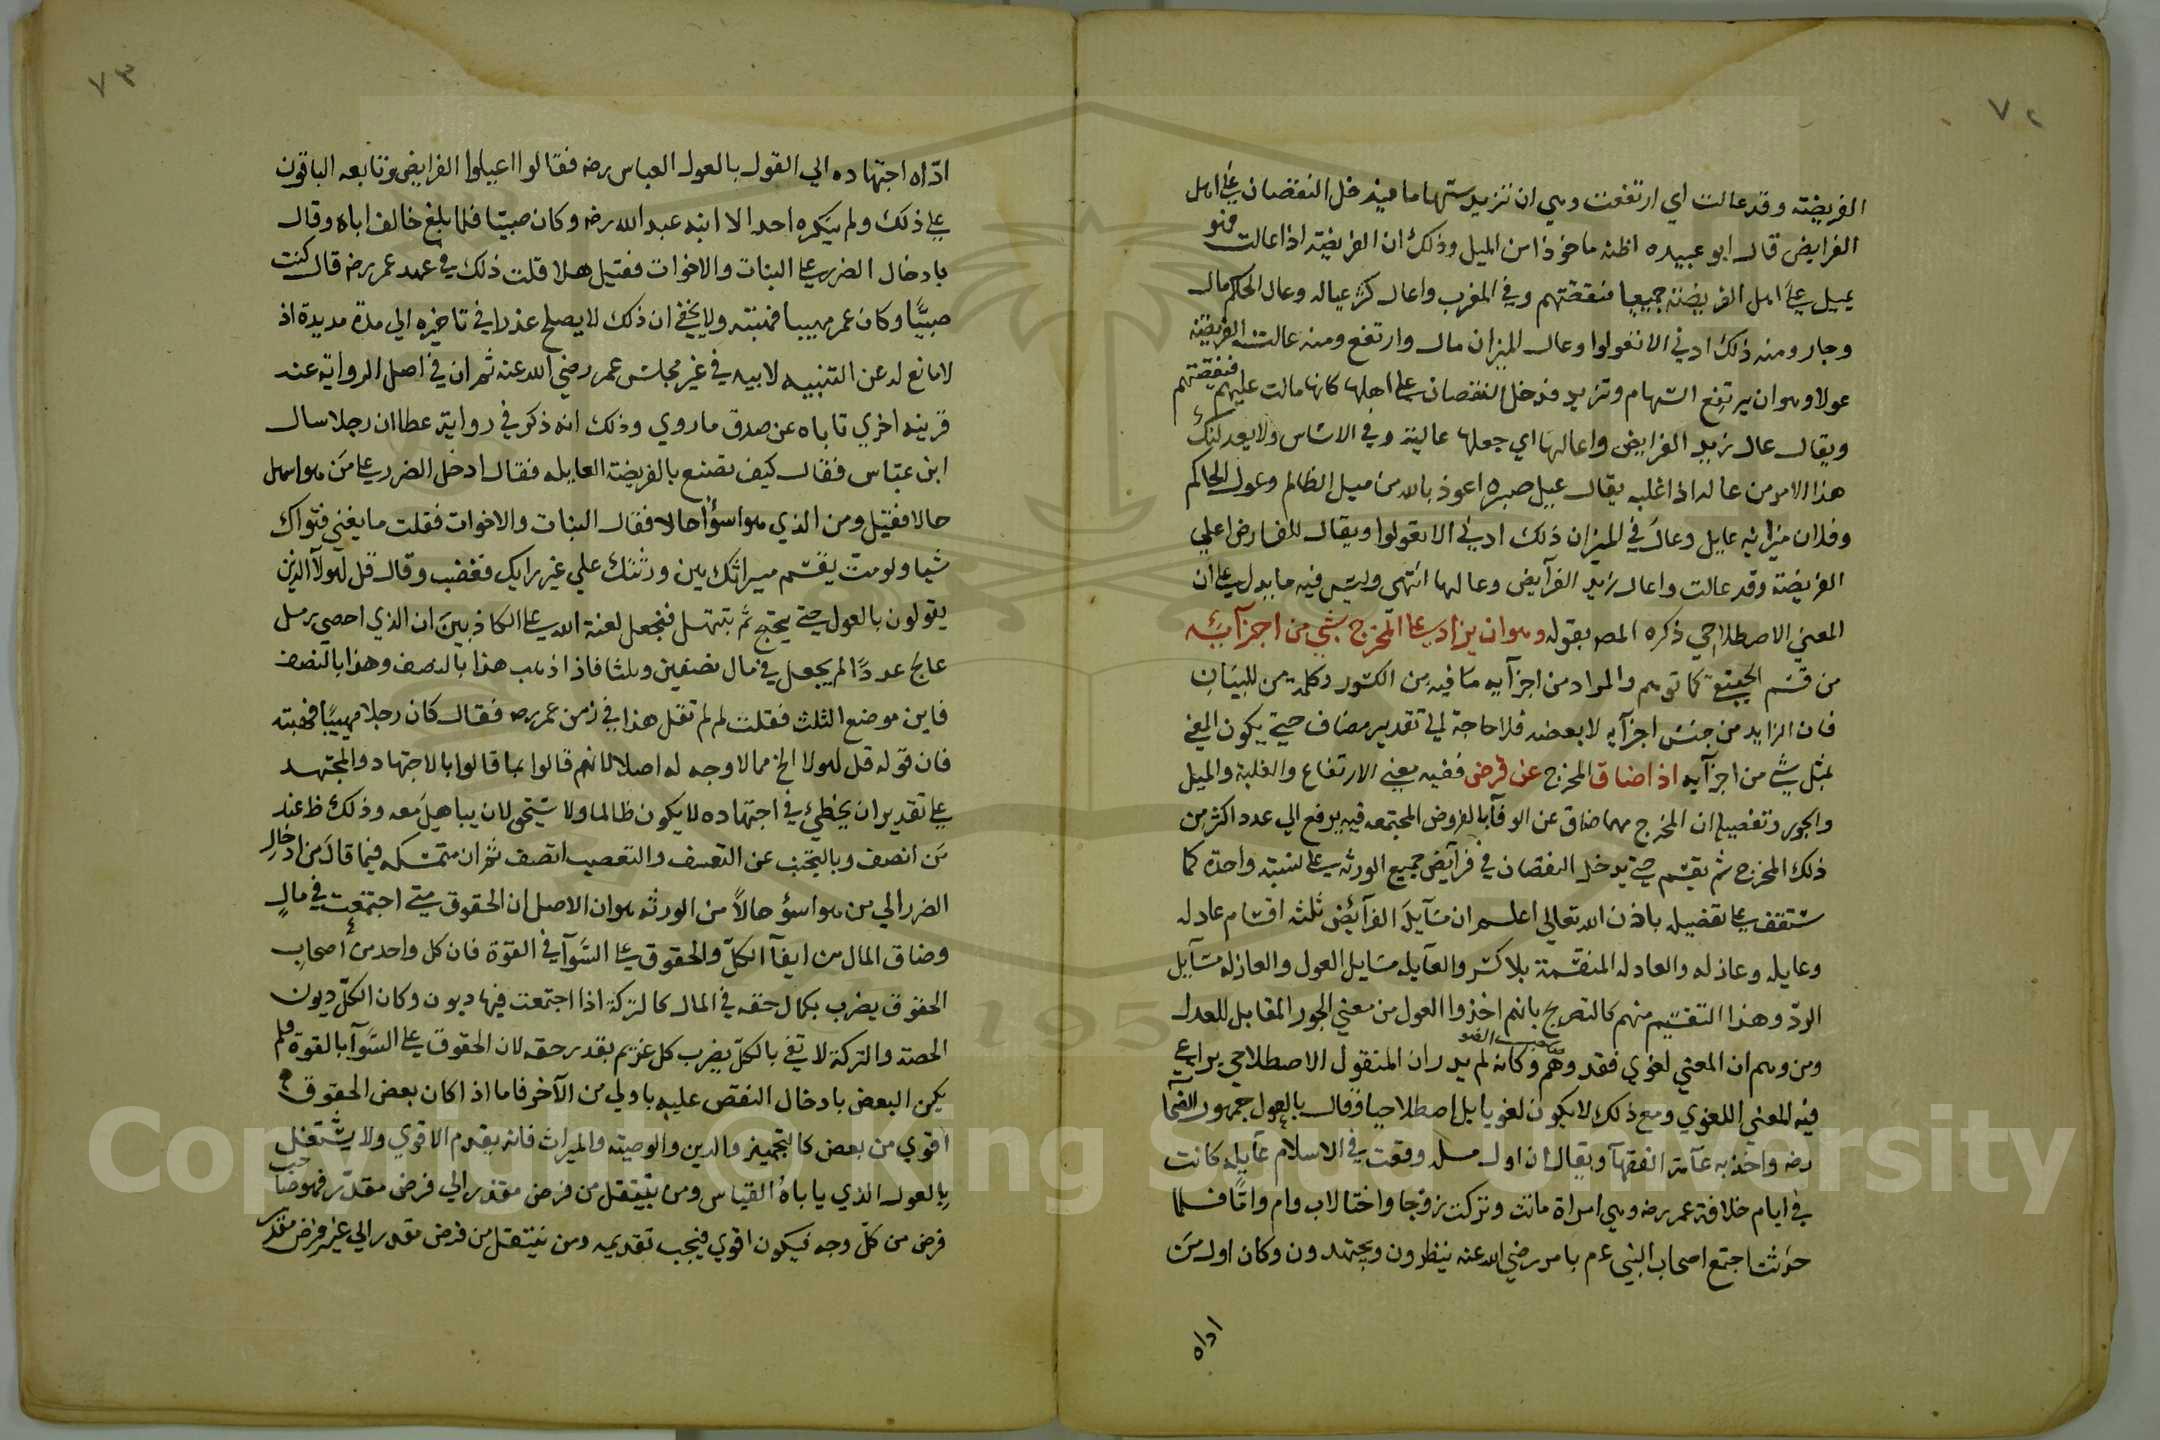 ٧٢
الفريضه وقد عالت اي ارتفعت وهي ان تزيد سهاما فيدخل النقصان على اهل
الفرايض قال ابو عبيده اظنه ماخوذا من الميل وذلك ان الفريضة اذا عالت فهو
يميل على اهل الفريضة جميعا فنقصتهم وفي المغرب واعال كثر عياله وعال الحاكم مال
وجار ومنه ذلك ادني الا تعولوا وعال الميزان مال وارتفع ومنه عالت الفريضة
عولا وهو ان يرتفع السهام وتزيد فدخل النقصان على اهلها كانها مالت عليهم فنقصتهم
ويقال عال زيد الفرايض واعالها اي جعلها عالية وفي الاساس ولا يعد لنك
هذا الامر من عاله اذا غلبه يقال عيل صبره اعوذ بالله من ميل الظالم وعول الحاكم
وفلان ميزانه عايل وعال في الميزان ذلك ادني الا تعولوا ويقال للفارض اعلي
الفريضة وقد عالت واعال زيد الفرآيض وعالها انتهي وليس فيه ما يدل على ان
المعني الاصطلاحي ذكره المص بقوله وهو ان يزاد على المخرج شي من اجزآئه
من قسم كما توهم والمراد من اجزآيه ما فيه من الكسور وكلمة من للبيان
فان الزايد من جنس اجزآيه لا بعضه فلا حاجة الي تقدير مضاف حتي يكون المعني
بمثل شي من اجزآيه اذا ضاق المخرج عن فرض ففيه معني الارتفاع والغلبة والميل
والجور وتفصيله ان المخرج مهما ضاق عن الوفآ بالفروض المجتمعه فيه يرفع الي عدد اكثر من
ذلك المخرج ثم يقسم حتي يدخل النقصان في فرآيض جميع الورثه على نسبة واحدة كما
ستقف على تفصيله باذن الله تعالي اعلم ان مسآيل الفرآئض ثلثه اقسام عادله
وعايله وعاذله والعادله المنقسمة بلا كسر والعآيله مسايل العول والعاذله مسآيل
الردّ وهذا التقسيم منهم كالتصريح بانهم اخذوا العول من معني الجور المقابل للعدل
ومن وهم ان المعني لغوي فقد وهم وكانه لم يدر ان المنقول الاصطلاحي يراعي
فيه المعني اللغوي ومع ذلك لا يكون لغويا بل اصطلاحيا وقال بالعول جمهور الصحآ
رضه واخذ به عآمة الفقهآ ويقال ان اول مسله وقعت في الاسلام عآيله كانت
في ايام خلافة عمر رضه وهي امراة ماتت وتركت زوجا واختا لاب وام وامًّا فلما
حدثت اجتمع اصحاب النبي عم بامره رضي الله عنه ينظرون ويجتهدون وكان اول من
اداه
٧٣
ادّاه اجتهاده الي القول بالعول العباس رضه فقالوا اعيلوا الفرايض وتابعه الباقون
على ذلك ولم ينكره احد الا ابنه عبد الله رضه وكان صبيّا فلما بلغ خالف اباه وقال
بادخال الضرر على البنات والاخوات فقيل هلا قلت ذلك في عهد عمر رضه قال كنت
صبيًّا وكان عمر مهيبا فهبته ولا يخفي ان ذلك لا يصلح عذرا في تاخيره الي مدة مديدة اذ
لا مانع له عن التنبيه لابيه في غير مجلس عمر رضي الله عنه ثم ان في اصل الرواية عند
قرينه اخري تاباه عن صدق ما روي وذلك انه ذكر في رواية عطا ان رجلا سال
ابن عبّاس فقال كيف تصنع بالفريضة العايله فقال ادخل الضرر على من هو اسهل
حالا فقيل ومن الذي هو اسؤأ حالا فقال البنات والاخوات فقلت ما يغني فتواك
شيا ولو متّ يقسم ميراثك بين ورثتك علي غير رايك فغضب وقال قل لهولآ الذين
يقولون بالعول حتي يحتج ثمّ نبتهل فنجعل لعنة الله على الكاذبين ان الذي احصي رمل
عالج عددًا لم يجعل في مال نصفين وثلثا فاذا ذهب هذا بالنصف وهذا بالنصف
فاين موضع الثلث فقلت لم لم تقل هذا في زمن عمر رضه فقال كان رجلا مهيبًا فهبته
فان قوله قل لهولا الخ مما لا وجه له اصلا لانهم قالوا بما قالوا بالاجتهاد والمجتهد
على تقدير ان يخطئ في اجتهاده لا يكون ظالما ولا يستحق لان يباهل معه وذلك ظ عند
من انصف وبالتجنب عن التعسف والتعصب اتصف ثم ان متمسكه فيما قال من ادخال
الضرر الي من هو اسؤ حالًا من الورثه هو ان الاصل ان الحقوق متي اجتمعت في مالٍ
وضاق المال من ايفآ الكلّ والحقوق على السّوآ في القوة فان كل واحد من اصحاب
الحقوق يضرب بكمال حقه في المال كالتركة اذا اجتمعت فيها ديون وكان الكلّ ديون
الحصة والتركة لا تفي بالكلّ يضرب كل غريم بقدر حقه لان الحقوق على السّوآ بالقوة فلم
يكن البعض بادخال النقص عليه باولي من الآخر فاما اذا كان بعض الحقوق
اقوي من بعض كالتجهيز والدين والوصيه والميراث فانه يقدم الاقوي ولا يشتغل
بالعول الذي ياباهُ القياس ومن ينتقل من فرض مقدر الي فرض مقدّر فهو صاحب
فرض من كلّ وجه فيكون اقوي فيجب تقديمه ومن ينتقل من فرض مقدر الي غير فرض مقدر
Copyright © King Saud University